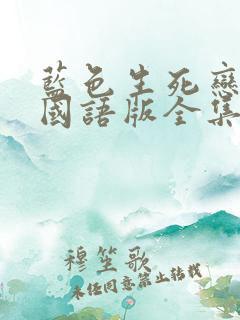 藍色生死戀
國語版全集
穆笙歌
未经同意禁止转载